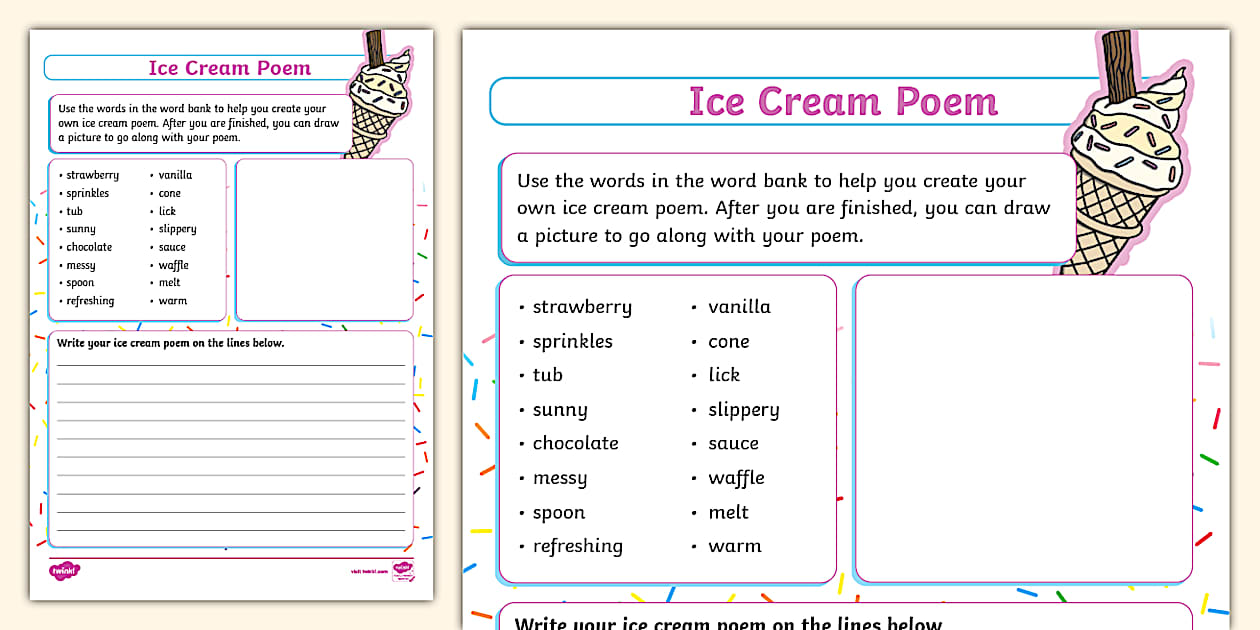 Ice Cream Poem
Use the words in the word bank to help you create your
own ice cream poem. After you are finished, you can draw
a picture to go along with your poem.
• strawberry
• sprinkles
• tub
• sunny
• chocolate
• messy
• spoon
• refreshing
• vanilla
• cone
• lick
• slippery
• sauce
• waffle
• melt
• warm
Write your ice cream poem on the lines below.
twinkl
visit twinkl.com
twinkl
Ice Cream Poem
Use the words in the word bank to help you create your
own ice cream poem. After you are finished, you can draw
a picture to go along with your poem.
• strawberry
• sprinkles
• tub
• sunny
• chocolate
• messy
• spoon
• refreshing
• vanilla
• cone
• lick
• slippery
• sauce
• waffle
• melt
• warm
Write your ice cream poem on the lines below